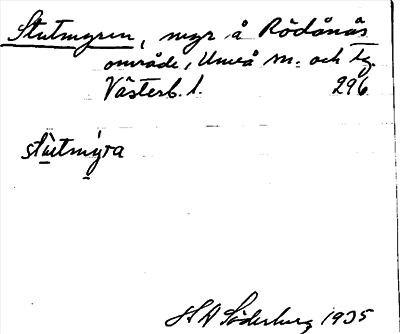 Stutmyren, myr å Rödånäs
område, Umeå m. och tg.
Västerb. l. 296
stùtmýra
H A Söderberg 1935